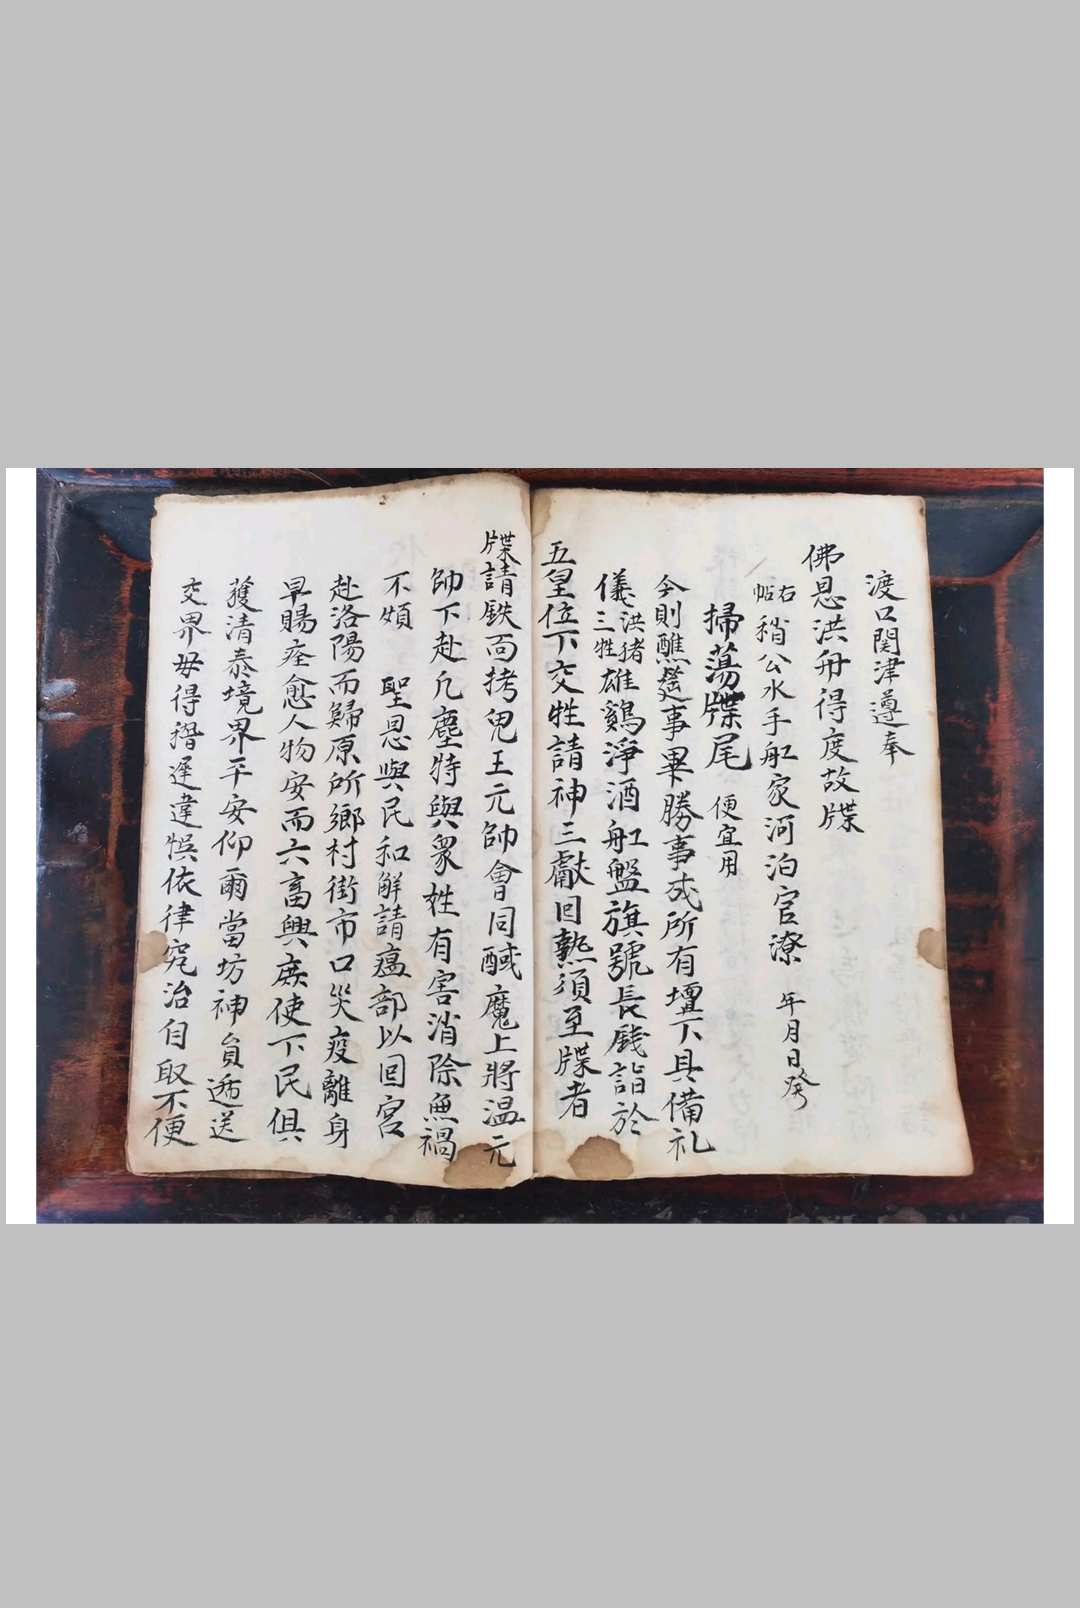 渡口関津遵奉
佛恩洪舟得度故牒
右帖 稍公水手舡家河泊官潦 年月日發
掃蕩牒尾 便宜用
今則醮筵事畢勝事成所有壇下具備礼
儀洪猪三牲雄鷄淨酒舡盤旗號長牋詣於
五皇位下交牲請神三獻回熟須至牒者
牒請鉄面拷鬼王元帥會同馘魔上將温元
帥下赴凡塵特與衆姓有害消除魚禍
不頗 聖恩與民和解請瘟部以回宮
赴洛陽而歸原所鄉村街市口災疫離身
早賜痊愈人物安而六畜興庻使下民俱
獲清泰境界平安仰爾當坊神員遞送
交界毋得稽遲違悮依律究治自取不便